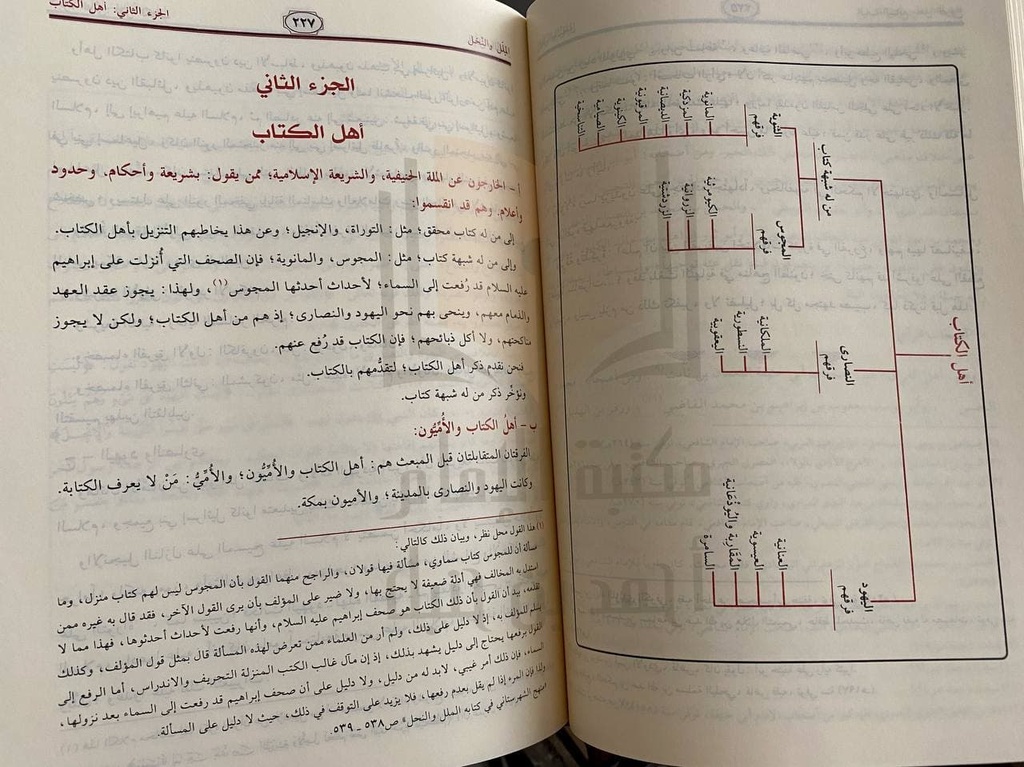 أهل الكتاب
اليهود
فرقهم
العنانية
العيسوية
المقاربة واليُوذعَانية
السامرة
النصارى
فرقهم
الملكانية
النسطورية
اليعقوبية
من له شبهة كتاب
المجوس
فرقهم
الكيومرثية
الزروانية
الزردشتية
الثنوية
فرقهم
المانوية
المزدكية
الديصانية
المرقيونية
الكينوية
الصيامية
التناسخية
الملل والنحل
٢٢٧
الجزء الثاني: أهل الكتاب
الجزء الثاني
أهل الكتاب
أ - الخارجون عن الملة الحنيفية، والشريعة الإسلامية؛ ممن يقول: بشريعة وأحكام، وحدود
وأعلام. وهم قد انقسموا:
إلى من له كتاب محقق؛ مثل: التوراة، والإنجيل؛ وعن هذا يخاطبهم التنزيل بأهل الكتاب.
وإلى من له شبهة كتاب؛ مثل: المجوس، والمانوية؛ فإن الصحف التي أُنزلت على إبراهيم
عليه السلام قد رُفعت إلى السماء؛ لأحداث أحدثها المجوس(١)، ولهذا: يجوز عقد العهد
والذمام معهم، وينحى بهم نحو اليهود والنصارى؛ إذ هم من أهل الكتاب؛ ولكن لا يجوز
مناكحتهم، ولا أكل ذبائحهم؛ فإن الكتاب قد رُفع عنهم.
فنحن نقدم ذكر أهل الكتاب؛ لتقدُّمهم بالكتاب.
ونؤخّر ذكر من له شبهة كتاب.
ب - أهلُ الكتاب والأُمِّيُّون:
الفرقتان المتقابلتان قبل المبعث هم: أهل الكتاب والأُمِّيُّون؛ والأُمِّيُّ: مَنْ لا يعرف الكتابة.
وكانت اليهود والنصارى بالمدينة؛ والأميون بمكة.
(١) هذا القول محل نظر، وبيان ذلك كالتالي:
مسألة أن للمجوس كتاب سماوي، مسألة فيها قولان، والراجح منهما القول بأن المجوس ليس لهم كتاب منزل، وما
استدل به المخالف فهي أدلة ضعيفة لا يحتج بها، ولا ضير على المؤلف بأن يرى القول الآخر، فقد قال به غيره ممن
تقدمه، بيد أن القول بأن ذلك الكتاب هو صحف إبراهيم عليه السلام، وأنها رفعت لأحداث أحدثوها، فهذا مما لا
يسلم للمؤلف به، إذ لا دليل على ذلك، ولم أر من العلماء ممن تعرض لهذه المسألة قال بمثل قول المؤلف، وكذلك
القول برفعها يحتاج إلى دليل يشهد بذلك، إذ إن مآل غالب الكتب المنزلة التحريف والاندراس، أما الرفع إلى
السماء، فإن ذلك أمر غيبي، لابد له من دليل، ولا دليل على أن صحف إبراهيم قد رفعت إلى السماء بعد نزولها،
ولذا فإن المرء إذا لم يقل بعدم رفعها، فلا يزيد على التوقف في ذلك، حيث لا دليل على المسألة.
«منهج الشهرستاني في كتابه الملل والنحل» ص٥٣٨ ـ ٥٣٩.